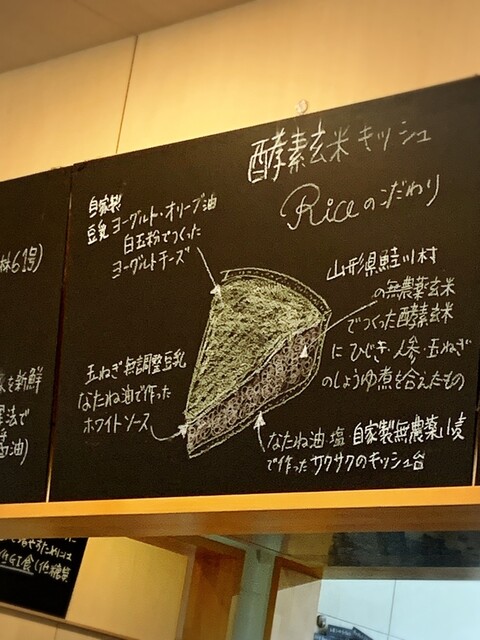 酵素玄米キッシュ
Riceのこだわり
自家製
豆乳ヨーグルト・オリーブ油
白玉粉でつくった
ヨーグルトチーズ
山形県鮭川村
の無農薬玄米
でつくった酵素玄米
にひじき・人参・玉ねぎ
のしょうゆ煮を合えたもの
玉ねぎ 無調整豆乳
なたね油で作った
ホワイトソース
なたね油 塩 自家製無農薬小麦
で作ったサクサクのキッシュ台
61号)
を新鮮
法で
油)